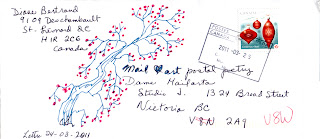 Diane Bertrand
9109 Deschambault
St-Léonard QC
H1R 2C6
Canada
Mail Art postal poetry
Dame Mailarta
Studio J. 1324 Broad Street
Victoria BC
V8N 2A9 V8W
2011-03-25
Lettre 24-03-2011